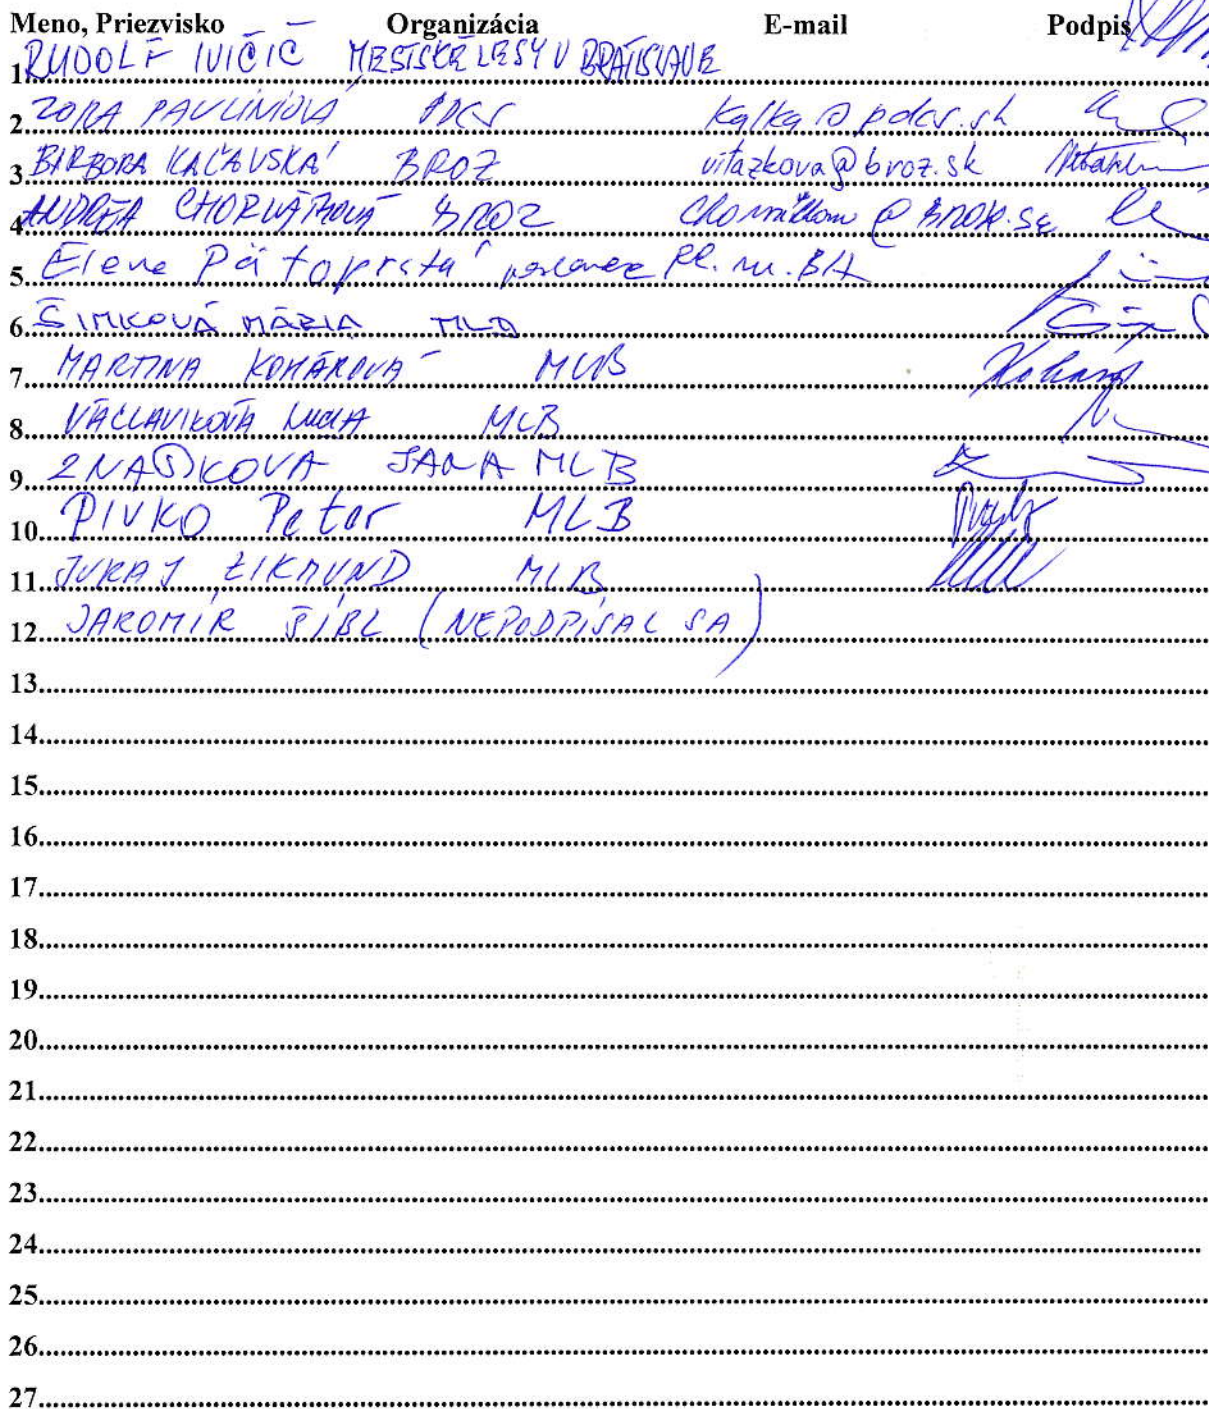 Meno, Priezvisko Organizácia E-mail Podpis
1. RUDOLF IVIČIČ MESTSKÉ LESY V BRATISLAVE
2. ZORA PAULÍNIOVÁ PDCS kalka@pdcs.sk
3. BARBORA KAČAVSKÁ BROZ vitazkova@broz.sk
4. ANDREA CHORVÁTHOVÁ BROZ
5. Elena Pätoprstá poslanec BA
6. ŠIMKOVÁ MÁRIA MLB
7. MARTINA KOMÁROVÁ MLB
8. VÁCLAVIKOVÁ LUCIA MLB
9. ZNAŠKOVA JANA MLB
10. PIVKO Peter MLB
11. JURAJ ŽIKMUND MLB
12. JAROMÍR ŠÍBL (NEPODPÍSAL SA)
13.
14.
15.
16.
17.
18.
19.
20.
21.
22.
23.
24.
25.
26.
27.